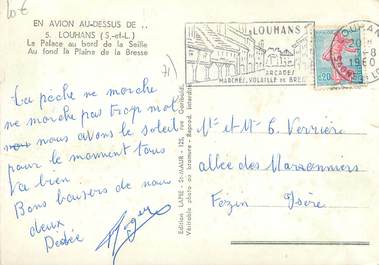 10€
EN AVION AU-DESSUS DE ..
5. LOUHANS (S.-et-L.)
Le Palace au bord de la Seille
Au fond la Plaine de la Bresse
71)
La pêche ne marche
ne marche pas trop mal
nous avons le soleil
pour le moment tous
va bien
Bons baisers de nous
deux
Dédée Roger
Edition LAPIE - St-MAUR - 125, rue
Véritable photo au bromure - Reprod. interdite
LOUHANS
ARCADES
MARCHÉS, VOLAILLE DE BRESSE
LOUHANS
1960
0,20
Mr et Mme C. Verrière
allée des Marronniers
Isère